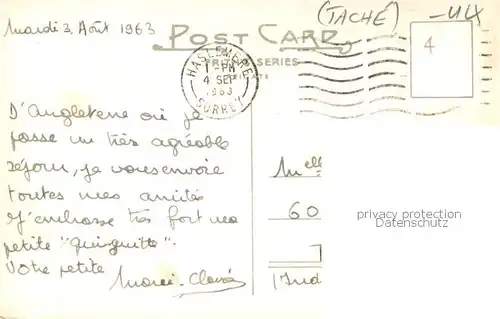 Mardi 3 Août 1963
(TACHÉ)
-44
POST CARD
SERIES
4
HASLEMERE
1-PM
4 SEP
1963
SURREY
D'Angleterre où je
passe un très agréable
séjour, je vous envoie
toutes mes amitiés
J'embrasse très fort ma
petite "Quinquitte".
Votre petite
Marie-Claire
Melle
60
privacy protection
Datenschutz